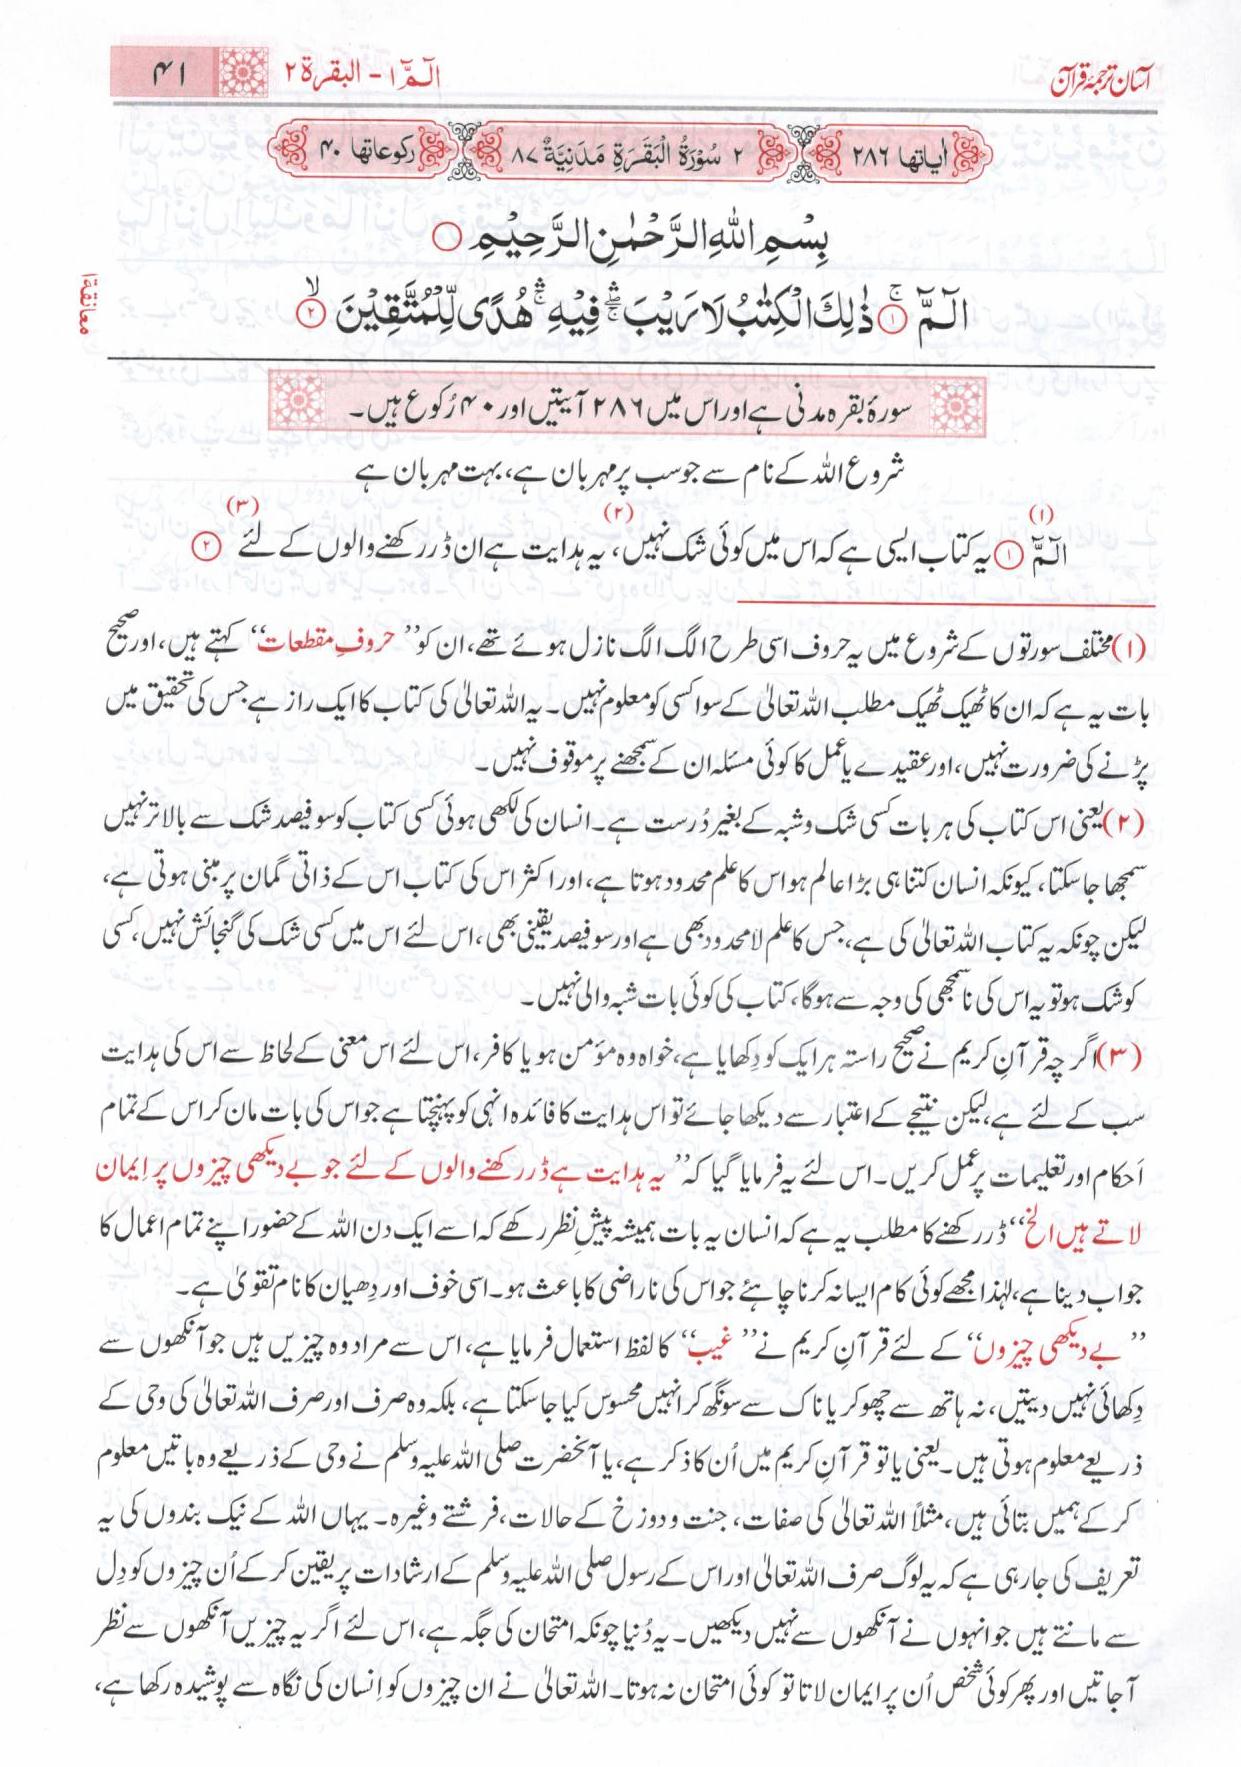 آسان ترجمۂ قرآن
الٓمّٓ ۱ - البقرۃ ۲
۴۱
اٰیاتھا ۲۸۶
۲ سُوْرَۃُ الْبَقَرَۃِ مَدَنِیَّۃٌ ۸۷
رکوعاتھا ۴۰
بِسْمِ اللّٰہِ الرَّحْمٰنِ الرَّحِیْمِ ○
الٓمّٓ ۚ﴿۱﴾ ذٰلِكَ الْكِتٰبُ لَا رَیْبَ ۛۖ فِیْهِ ۛۚ هُدًی لِّلْمُتَّقِیْنَ ۙ﴿۲﴾
معانقة ۱
سورۂ بقرہ مدنی ہے اور اس میں ۲۸۶ آیتیں اور ۴۰ رُکوع ہیں۔
شروع اللہ کے نام سے جو سب پر مہربان ہے، بہت مہربان ہے
الٓمّٓ (۱) ﴿۱﴾ یہ کتاب ایسی ہے کہ اس میں کوئی شک نہیں، (۲) یہ ہدایت ہے ان ڈر رکھنے والوں کے لئے (۳) ﴿۲﴾
(۱) مختلف سورتوں کے شروع میں یہ حروف اسی طرح الگ الگ نازل ہوئے تھے، ان کو ’’حروفِ مقطعات‘‘ کہتے ہیں، اور صحیح
بات یہ ہے کہ ان کا ٹھیک ٹھیک مطلب اللہ تعالیٰ کے سوا کسی کو معلوم نہیں۔ یہ اللہ تعالیٰ کی کتاب کا ایک راز ہے جس کی تحقیق میں
پڑنے کی ضرورت نہیں، اور عقیدے یا عمل کا کوئی مسئلہ ان کے سمجھنے پر موقوف نہیں۔
(۲) یعنی اس کتاب کی ہر بات کسی شک و شبہ کے بغیر دُرست ہے۔ انسان کی لکھی ہوئی کسی کتاب کو سو فیصد شک سے بالاتر نہیں
سمجھا جا سکتا، کیونکہ انسان کتنا ہی بڑا عالم ہو اس کا علم محدود ہوتا ہے، اور اکثر اس کی کتاب اس کے ذاتی گمان پر مبنی ہوتی ہے،
لیکن چونکہ یہ کتاب اللہ تعالیٰ کی ہے، جس کا علم لامحدود بھی ہے اور سو فیصد یقینی بھی، اس لئے اس میں کسی شک کی گنجائش نہیں، کسی
کو شک ہو تو یہ اس کی ناسمجھی کی وجہ سے ہوگا، کتاب کی کوئی بات شبہ والی نہیں۔
(۳) اگرچہ قرآنِ کریم نے صحیح راستہ ہر ایک کو دِکھایا ہے، خواہ وہ مؤمن ہو یا کافر، اس لئے اس معنی کے لحاظ سے اس کی ہدایت
سب کے لئے ہے، لیکن نتیجے کے اعتبار سے دیکھا جائے تو اس ہدایت کا فائدہ انہی کو پہنچتا ہے جو اس کی بات مان کر اس کے تمام
اَحکام اور تعلیمات پر عمل کریں۔ اس لئے یہ فرمایا گیا کہ ’’یہ ہدایت ہے ڈر رکھنے والوں کے لئے جو بے دیکھی چیزوں پر اِیمان
لاتے ہیں الخ‘‘ ڈر رکھنے کا مطلب یہ ہے کہ انسان یہ بات ہمیشہ پیشِ نظر رکھے کہ اسے ایک دن اللہ کے حضور اپنے تمام اعمال کا
جواب دینا ہے، لہٰذا مجھے کوئی کام ایسا نہ کرنا چاہئے جو اس کی ناراضی کا باعث ہو۔ اسی خوف اور دِھیان کا نام تقویٰ ہے۔
’’بے دیکھی چیزوں‘‘ کے لئے قرآنِ کریم نے ’’غیب‘‘ کا لفظ استعمال فرمایا ہے، اس سے مراد وہ چیزیں ہیں جو آنکھوں سے
دِکھائی نہیں دیتیں، نہ ہاتھ سے چھو کر یا ناک سے سونگھ کر انہیں محسوس کیا جا سکتا ہے، بلکہ وہ صرف اور صرف اللہ تعالیٰ کی وحی کے
ذریعے معلوم ہوتی ہیں۔ یعنی یا تو قرآنِ کریم میں اُن کا ذکر ہے، یا آنحضرت صلی اللہ علیہ وسلم نے وحی کے ذریعے وہ باتیں معلوم
کر کے ہمیں بتائی ہیں، مثلاً اللہ تعالیٰ کی صفات، جنت و دوزخ کے حالات، فرشتے وغیرہ۔ یہاں اللہ کے نیک بندوں کی یہ
تعریف کی جا رہی ہے کہ یہ لوگ صرف اللہ تعالیٰ اور اس کے رسول صلی اللہ علیہ وسلم کے ارشادات پر یقین کر کے اُن چیزوں کو دِل
سے مانتے ہیں جو انہوں نے آنکھوں سے نہیں دیکھیں۔ یہ دُنیا چونکہ امتحان کی جگہ ہے، اس لئے اگر یہ چیزیں آنکھوں سے نظر
آجاتیں اور پھر کوئی شخص اُن پر ایمان لاتا تو کوئی امتحان نہ ہوتا۔ اللہ تعالیٰ نے ان چیزوں کو اِنسان کی نگاہ سے پوشیدہ رکھا ہے،